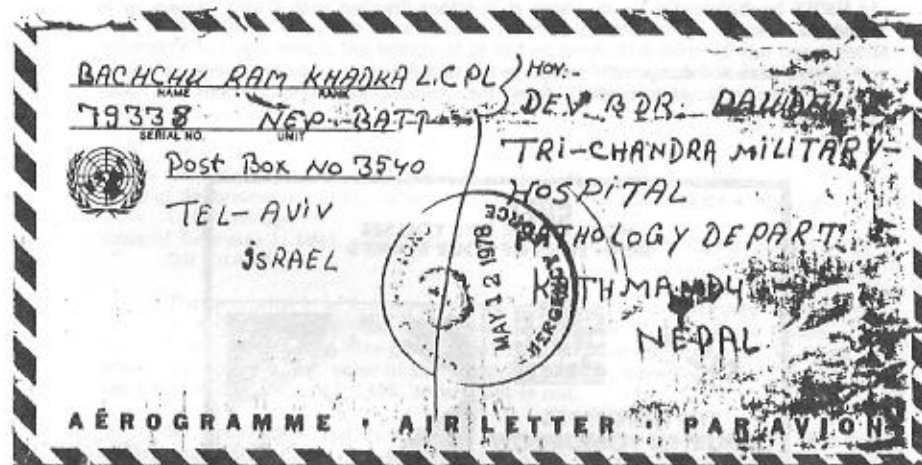 BACHCHU RAM KHADKA L.CPL
NAME RANK
79338 NEP-BATT
SERIAL NO. UNIT
Post Box No 3540
TEL-AVIV
ISRAEL
HOV:-
DEV BDR.
TRI-CHANDRA MILITARY-
HOSPITAL
PATHOLOGY DEPART:
KATHMANDU
NEPAL
MAY 12 1978
AÉROGRAMME · AIR LETTER · PAR AVION